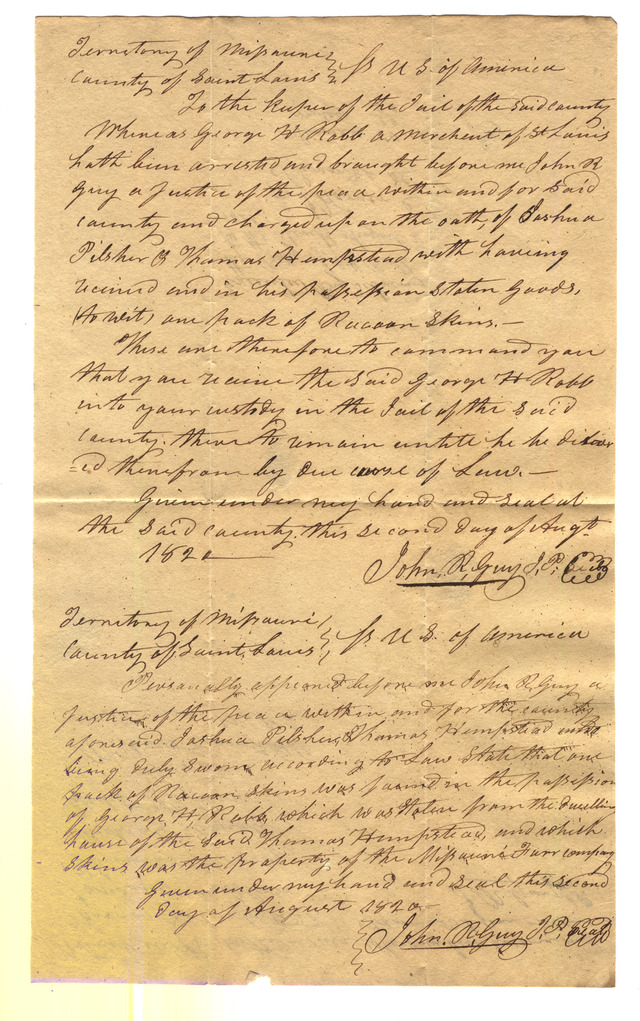 Territory of Missouri
County of Saint Louis } ss U S. of America
To the keeper of the Jail of the said county
Whereas George H Robb a Merchent of St Louis
hath been arrested and braught before me John R
Guy a Justice of the peace within and for said
county and charged upon the oath, of Joshua
Pilsher & Thomas Hempstead with haveing
recieved and in his possession stolen Goods,
(to wit) one pack of Racoon Skins.—
These are therefore to command you
that you recieve the said George H Robb
into your custody in the Jail of the said
county. there to remain untile he be
=ed therefrom by due corse of Law.—
Given under my hand and seal at
the said county. this second day of Augt.
1820
John. R. Guy J. P.
Territory of Missouri
County of Saint, Louis } ss U S. of America
Personally appeared before me John R. Guy a
Justice of the peace within and for the county
aforesaid. Joshua Pilsher & Thomas Hempstead who
being duly sworn according to Law state that one
pack of Racoon skins was found in the possession
of George. H. Robb, which was stolen from the dwelling
house of the said Thomas Hempstead, and which
skins was the property of the Missouri Furr company
Given under my hand and seal this second
day of August 1820—
John. R. Guy J. P. Seal